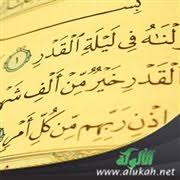 بِسْـ
ـزَلْنَٰهُ فِى لَيْلَةِ ٱلْقَدْرِ ١
ٱلْقَدْرِ خَيْرٌ مِّنْ أَلْفِ شَهْـ
إِذْنِ رَبِّهِم مِّن كُلِّ أَمْرٍ
الألوكة
www.alukah.net